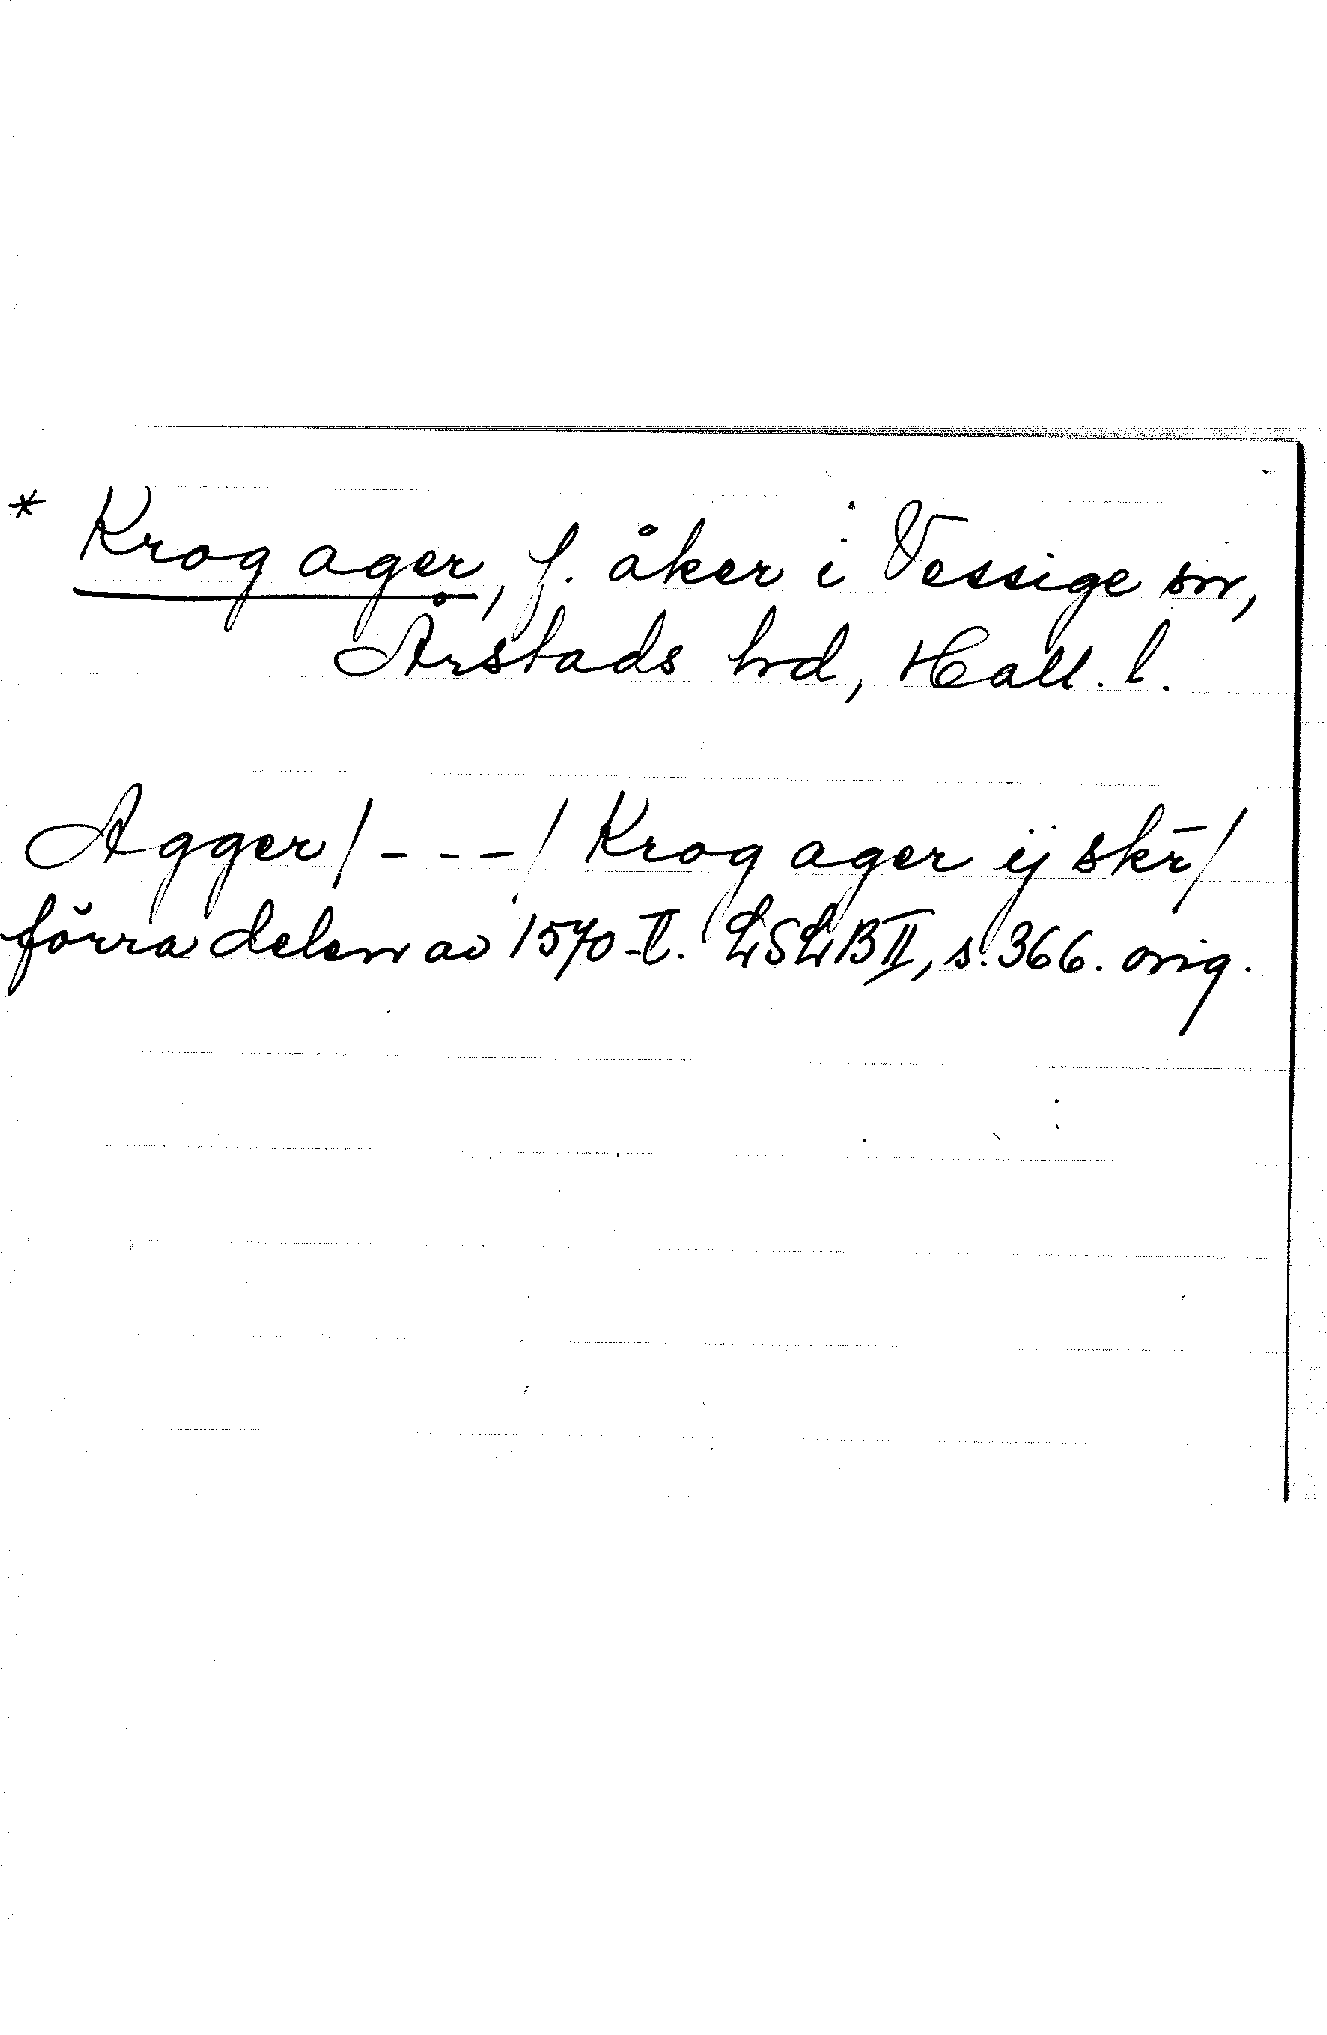 * Krog ager, f. åker i Vessige sn,
Årstads hd, Hall. l.
Agger/---/ Krog ager ij skr̄/
förra delen av 1570-t. LSLB II, s. 366. orig.